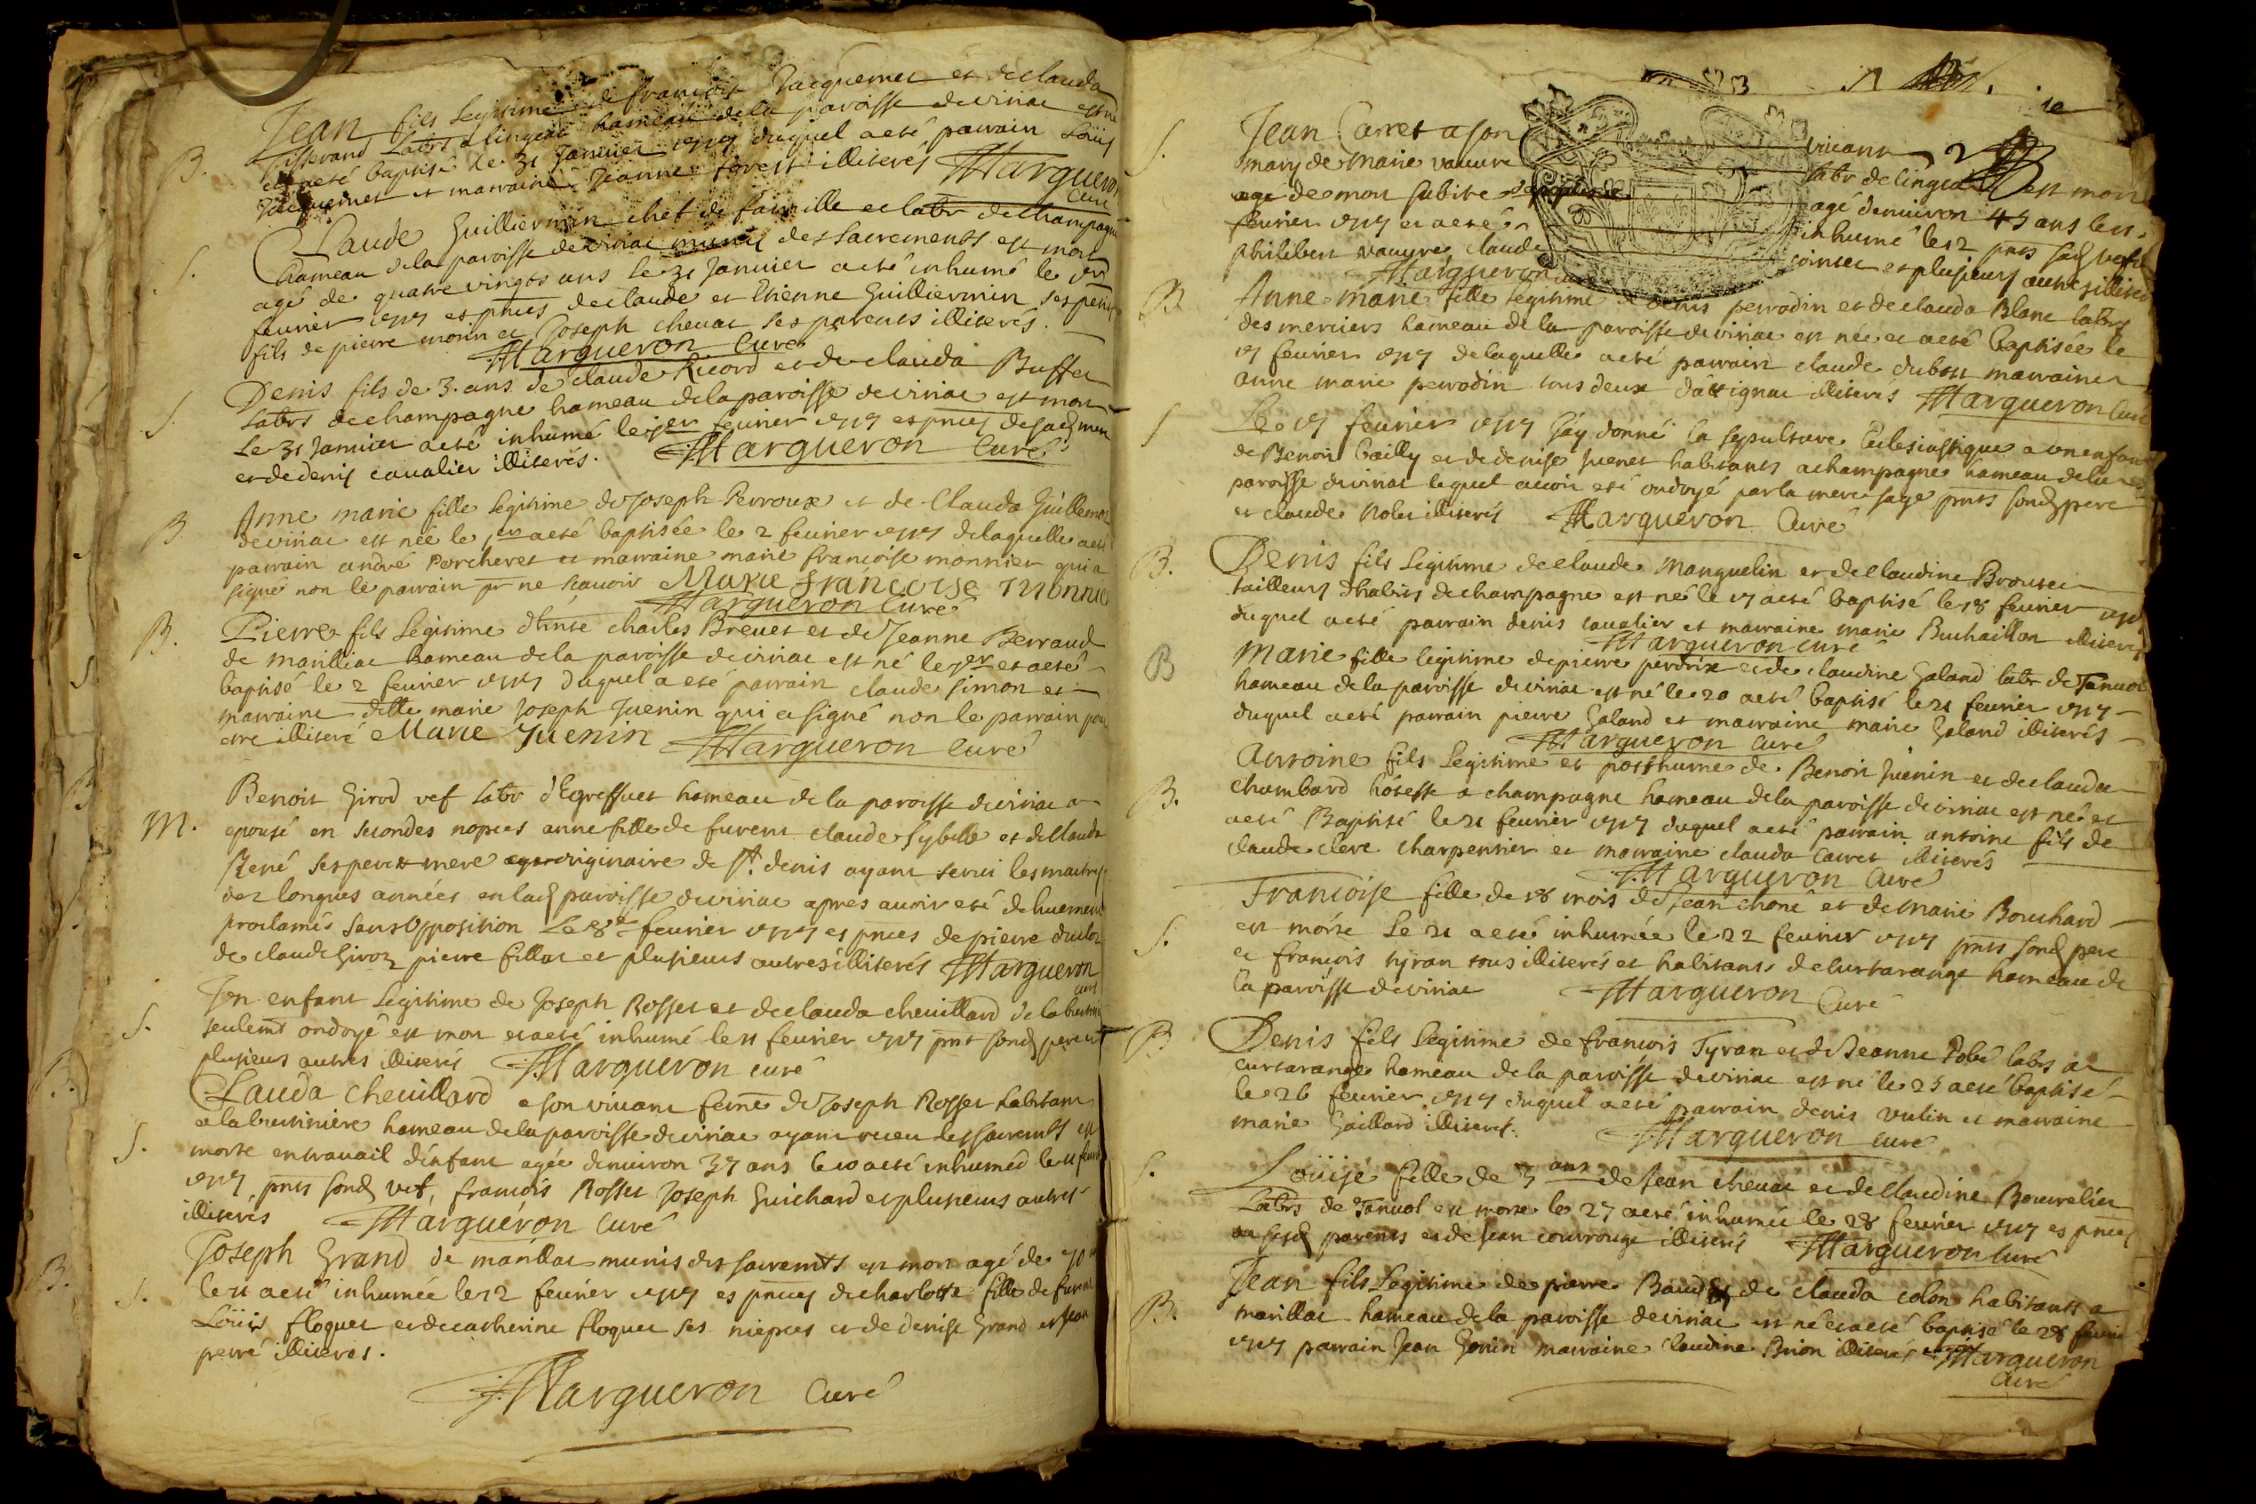 Jean fils legitime de françois Jacquemet et de clauda
Tisserand labrs a lingeat hameau de la paroisse de viriac est né
et a eté baptisé le 31 Janvier 1717 duquel a eté parrain Loüis
B.
Jacquemet et marraine Jeanne forest illiterés Margueron
Curé
Claude Guilliermin chef de famille et labr de champagne
S.
hameau de la paroisse de viriac munis des sacrements est mort
agé de quatre vingts ans le 31 Janvier a eté inhumé le 1er
fevrier 1717 es pnces de claude et Etienne Guilliermin ses petits
fils de pierre morin et Joseph chevat ses parents illiterés.
Margueron Curé
Denis fils de 3. ans de claude Ricord et de clauda Buffet
S.
labrs de champagne hameau de la paroisse de viriac est mort
Le 31 Janvier a eté inhumé le 1er fevrier 1717 es pnces de sad mere
et de denis cavalier illiterés. Margueron Curé
Anne marie fille legitime de Joseph Perroux et de Clauda Guillemot
B.
de viriac est née le 1er a eté baptisée le 2 fevrier 1717 de laquelle a eté
parrain andré Porcheret et marraine marie françoise monnier qui a
signé non le parrain pr ne scavoir Marie francoise monnie
Margueron Curé
B.
Pierre fils legitime d'hnte charles Brevet et de Jeanne Berraud
de marilliac hameau de la paroisse de viriac est né le 1er et a eté
baptisé le 2 fevrier 1717 duquel a eté parrain claude simon et
marraine dlle marie Joseph Juenin qui a signé non le parrain pour
etre illiteré Marie Juenin Margueron Curé
Benoit Girod vef labr d'Egreffuet hameau de la paroisse de viriac a
M.
epousé en secondes nopces anne fille de furent claude sybelle et de clauda
René ses pere et mere originaire de st. denis ayant servi les maitres
dez longues années en lad paroisse de viriac apres avoir eté dehuement
proclamés sans opposition Le 8e fevrier 1717 es pnces de pierre duclos
de claude Giroz pierre fillat et plusieurs autres illiterés Margueron
curé
Un enfant legitime de Joseph Rosset et de clauda chevillard de la
S.
seulemt ondoyé est mort et a eté inhumé le 11 fevrier 1717 pnt sond pere et
plusieurs autres illiterés Margueron curé
Clauda chevillard a son vivant feme de Joseph Rosset habitant
S.
a la brevinniere hameau de la paroisse de viriac ayant receu les sacremts est
morte en travail d'enfant agée denviron 37 ans le 10 a eté inhumée le 11 fevrier
1717 pnts sond vef, françois Rosset Joseph Guichard et plusieurs autres
illiterés Margueron Curé
Joseph Grand de marillac munis des sacremts est mort agé de 70
S.
le 11 a eté inhumée le 12 fevrier 1717 es pnces de charlotte fille de furent
Loüis floquet et de catherine floquet ses niepces et de denise Grand et Jean
perré illiterés.
Margueron Curé

S.
Jean Carret a son vivant
mary de marie vauvre labr de lingeat est mort
agé de mort subite agé denviron 45 ans le 11
fevrier 1717 et a eté inhumé le 12 pnts sad vefve
philibert vauvre, claude et plusieurs autres illiterés
Margueron
B.
Anne marie fille legitime de denis perrodin et de clauda Blanc labrs
des merciers hameau de la paroisse de viriac est née et a eté baptisée le
17 fevrier 1717 de laquelle a eté parrain claude dubost marraine
anne marie perrodin tous deux d'attignac illiterés Margueron Curé
S
Le 17 fevrier 1717 J'ay donné la sepulture Ecclesiastique a un enfant
de Benoit Bailly et de denise Juenet habitants a champagne hameau de la
paroisse de viriac lequel avoit eté ondoyé par la mere sage pnts sond pere
et claude Nolet illiterés Margueron Curé
B.
Denis fils legitime de claude Manguelin et de claudine Brouset
tailleurs d'habits de champagne est né le 17 a eté baptisé le 18 fevrier 1717
duquel a eté parrain denis cavalier et marraine marie Buchaillon illiterés
Margueron curé
B
Marie fille legitime de pierre perdrix et de claudine Galand labr de Tanvol
hameau de la paroisse de viriac est né le 20 a eté baptisé le 21 fevrier 1717
duquel a eté parrain pierre Galand et marraine marie Galand illiterés
Margueron Curé
Antoine fils legitime et posthume de Benoit Juenin et de clauda
B.
chambard hôtesse a champagne hameau de la paroisse de viriac est né et
a eté Baptisé le 21 fevrier 1717 duquel a eté parrain antoine fils de
claude clere charpentier et marraine clauda carret illiterés
Margueron Curé
Françoise fille de 18 mois de Jean choné et de marie Bouchard
S.
est morte le 21 a eté inhumée le 22 fevrier 1717 pnts sond pere
et françois tyran tous illiterés et habitants de curtarange hameau de
la paroisse de viriac Margueron Curé
B
Denis fils legitime de francois Tyran et de Jeanne Pobé labrs a
curtarange hameau de la paroisse de viriac est né le 25 a eté baptisé
le 26 fevrier 1717 duquel a eté parrain denis vulin et marraine
marie Gaillard illiterés. Margueron curé
S.
Loüise fille de 3 ans de Jean chevat et de claudine Bourrelier
labrs de Tanvol est morte le 27 a eté inhumée le 28 fevrier 1717 es pnces
de sesd parents et de Jean couvrouge illiterés Margueron Curé
Jean fils legitime de pierre Baudet de clauda colon habitants a
B.
marillac hameau de la paroisse de viriac est né et a eté baptisé le 28 fevrier
1717 parrain Jean Gonin marraine claudine Brion illiterés Margueron
Curé